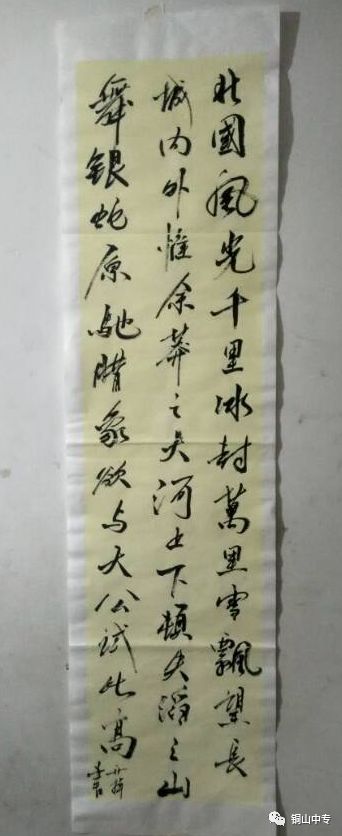 北國風光千里冰封萬里雪飄望長
城内外惟余莽之大河上下頓失滔之山
舞银蛇原馳腊象欲与天公試比高
铜山中专